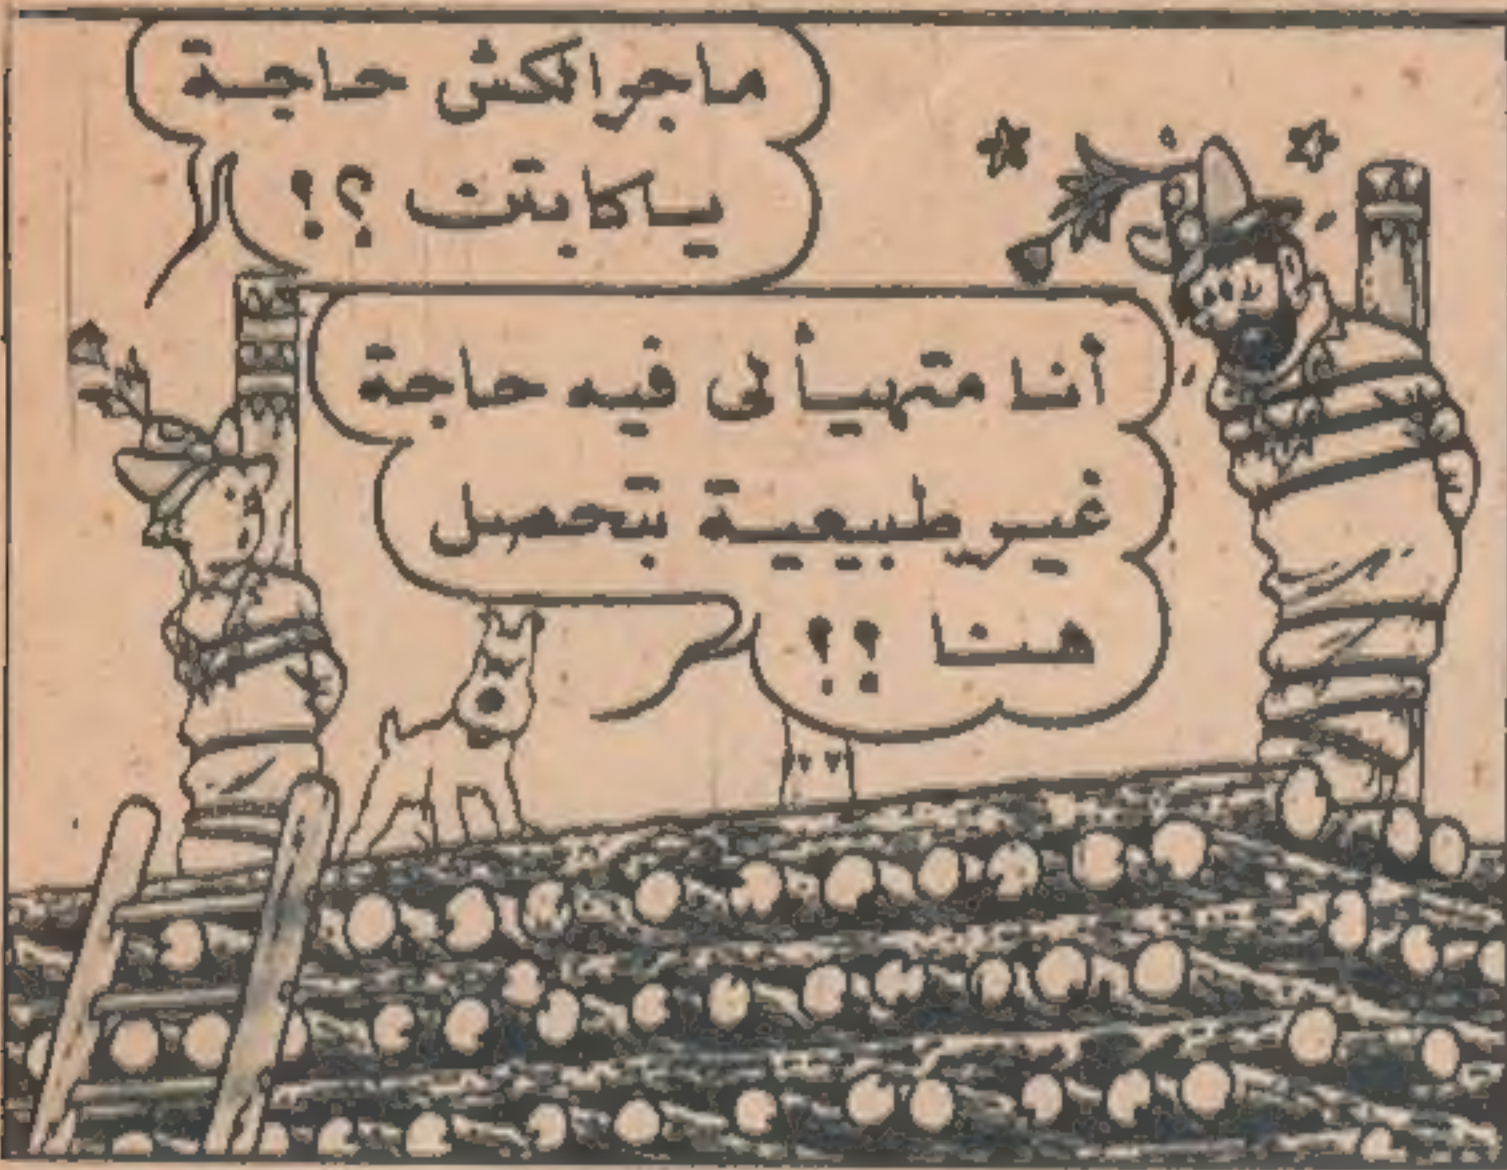 ماجرالكش حاجة
ياكابتن ؟!
أنا متهيألى فيه حاجة
غير طبيعية بتحصل
هنا ؟!